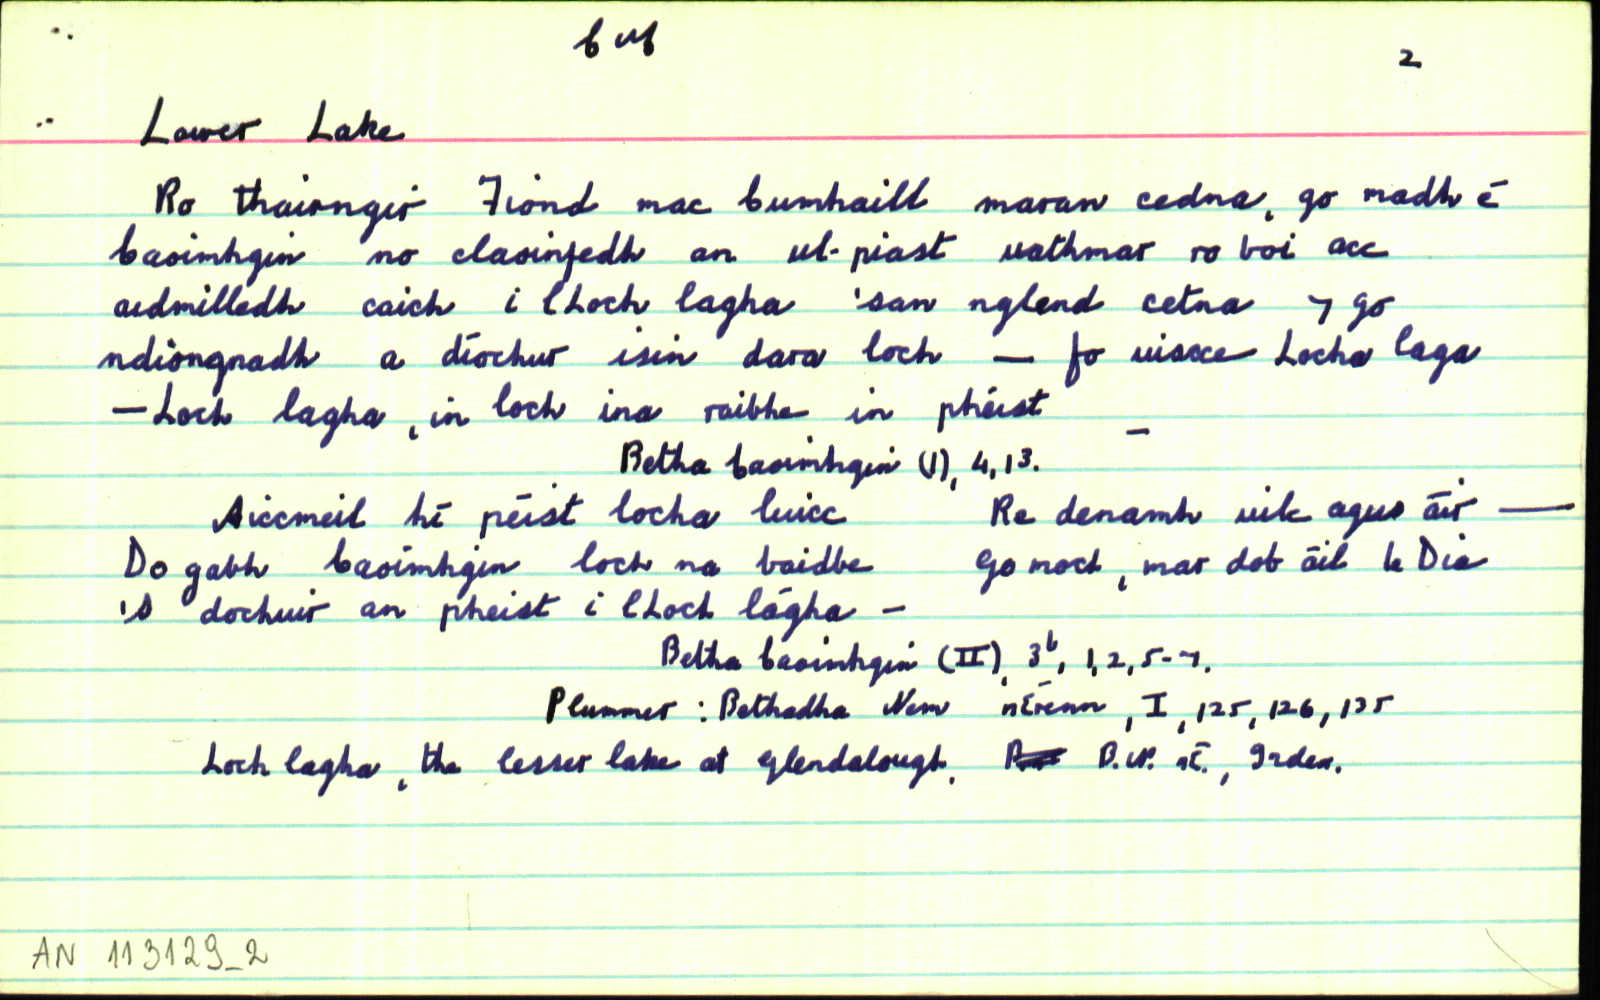 2
Lower Lake
Ro thairngir Fiond mac Cumhaill maran cedna, go madh é
Caoimhgin no claoinfedh an ul-piast uathmar ro boi acc
aidmilledh caich i lLoch lagha 'san nglend cetna ⁊ go
ndiongnadh a díochur isin dara loch — fo uiscce Locha laga
— Loch lagha, in loch ina raibhe in phéist —
Betha Caoimhgin (I), 4, 13.
Aiccmeil hí péist locha luicc Re denamh uilc agus áir —
Do gabh Caoimhgin loch na baidbe Go moch, mar dob áil le Dia
'S dochuir an pheist i lLoch lágha —
Betha Caoimhgin (II), 3b, 1, 2, 5-7.
Plummer : Bethadha Nem nÉrenn, I, 125, 126, 135
Loch lagha, the lesser lake at Glendalough. B.N. nÉ., Index.
AN 113129_2